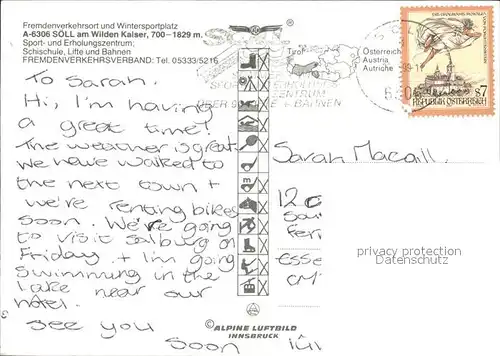 Fremdenverkehrsort und Wintersportplatz
A-6306 SÖLL am Wilden Kaiser, 700-1829 m.
Sport- und Erholungszentrum;
Schischule, Lifte und Bahnen
FREMDENVERKEHRSVERBAND: Tel. 05333/5216
Tirol
Österreich
Austria
Autriche
REPUBLIK ÖSTERREICH
S7
To Sarah.
Hi, I'm having
a great time!
The weather is great
We have walked to
the next town +
we're renting bikes
soon. We're going
to visit Salburg on
Friday + I'm going
Swimming in the
Lake near our
hotel.
See you
Soon
Sarah Macgill.
12
Esse
CM
privacy protection
Datenschutz
© ALPINE LUFTBILD
INNSBRUCK